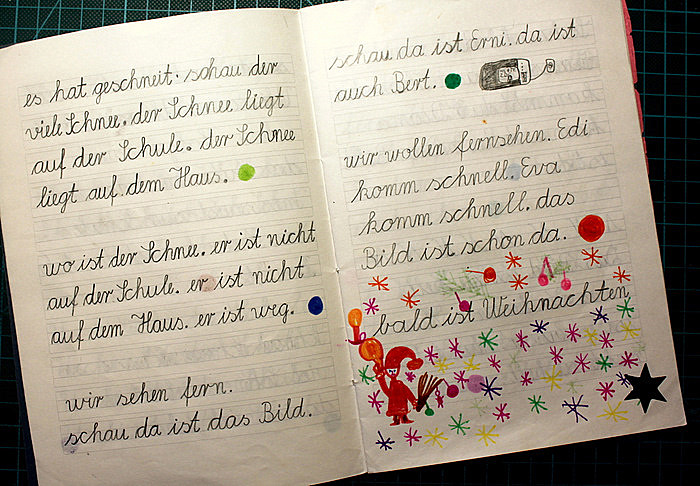 es hat geschneit. schau der
viele Schnee. der Schnee liegt
auf der Schule. der Schnee
liegt auf dem Haus.
wo ist der Schnee. er ist nicht
auf der Schule. er ist nicht
auf dem Haus. er ist weg.
wir sehen fern.
schau da ist das Bild.
schau da ist Erni. da ist
auch Bert.
wir wollen fernsehen. Edi
komm schnell. Eva
komm schnell. das
Bild ist schon da.
bald ist Weihnachten